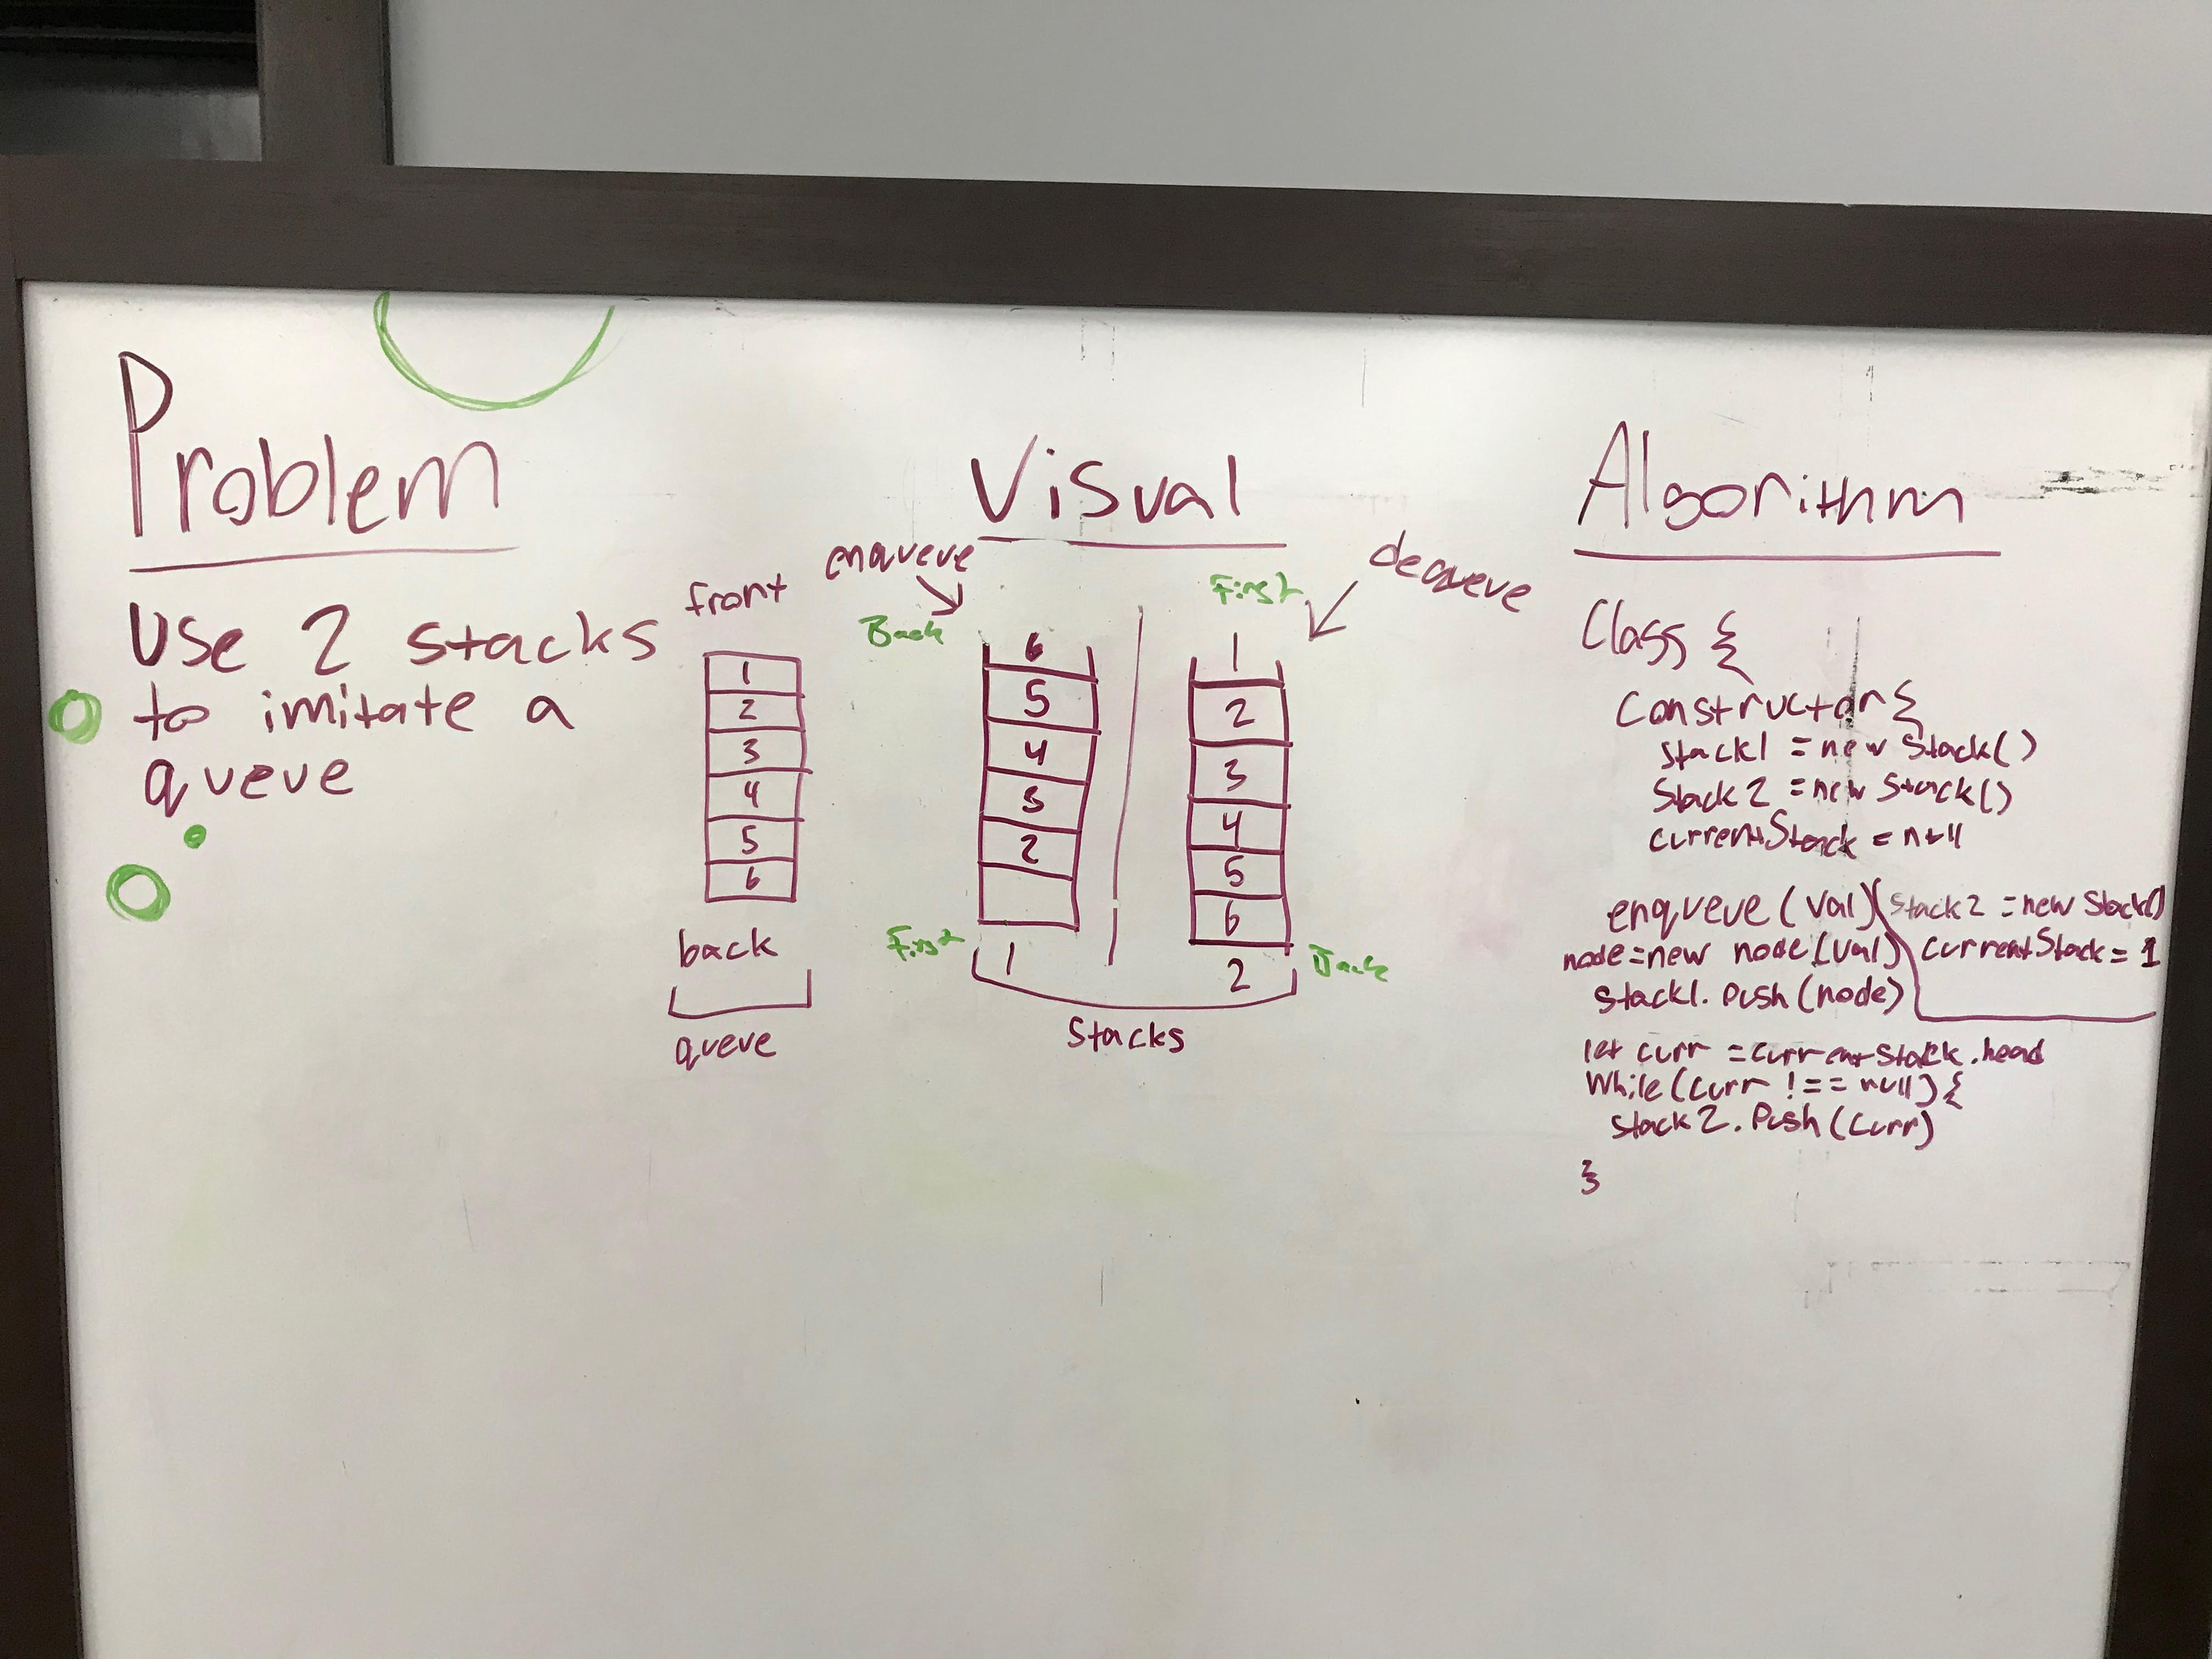 Problem
Use 2 stacks
to imitate a
queue
Visual
front
1
2
3
4
5
6
back
queue
enqueue
Back
6
5
4
3
2
First
1
First
dequeue
1
2
3
4
5
6
2
Back
Stacks
Algorithm
Class {
Constructor {
Stack1 = new Stack()
Stack2 = new Stack()
currentStack = null
enqueue (val)
node = new node (val)
Stack1. Push (node)
Stack2 = new Stack()
currentStack = 1
let curr = currentStack.head
While (curr !== null) {
Stack2. Push (curr)
}